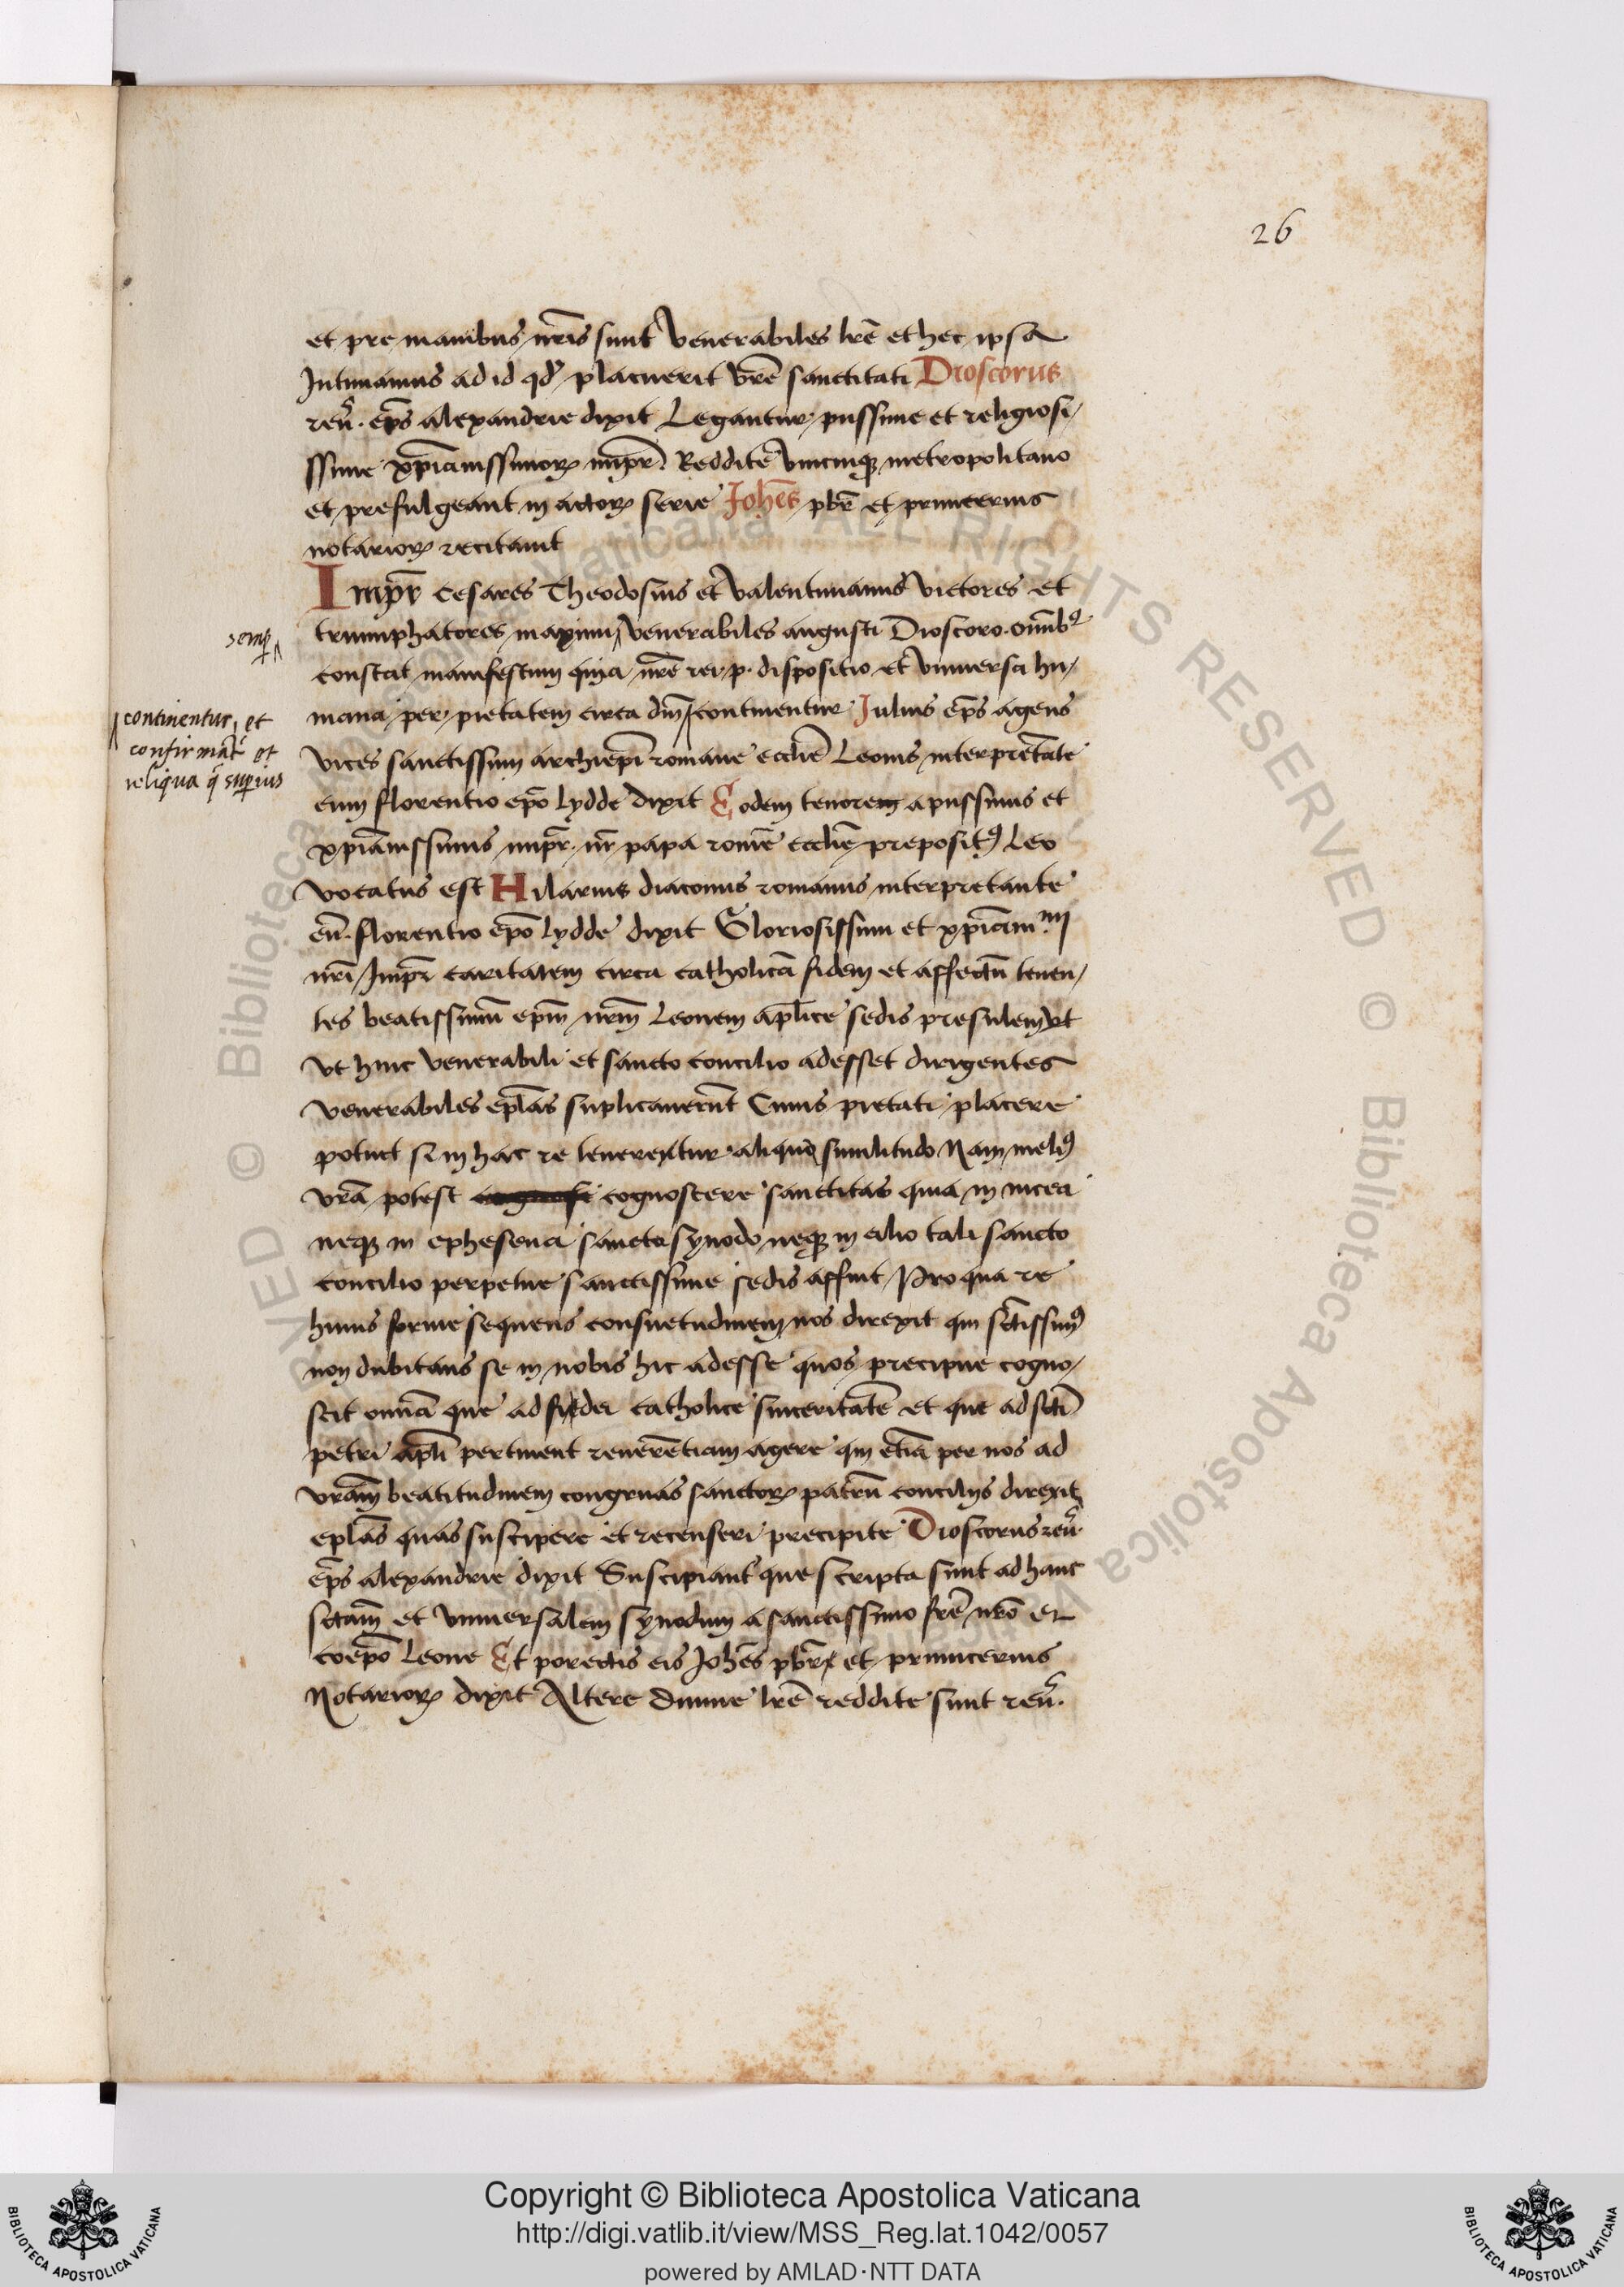 26
et pre manibus nr̄is sunt Venerabiles lr̄e et hec ipsa
Intimamus ad id qđ placuerit vr̄e sanctitati Dioscorus
reu᷑. ep̄s alexandrie dixit Legantur piissime et religiosi/
ssime xp̄ianissimoꝝ imp̄r. Reddite Vnicuiqꝫ metropolitano
et prefulgeant in actoꝝ serie Joh̄es pb̄r et primicerius
notarioꝝ recitauit
Imp̄r Cesares Theodosius et Valentinianus Victores et
triumphatores maximi Venerabiles augusti Dioscoro. omīb⁹
semꝑ
constat manifestum quia nr̄e rei. p. dispositio et Vniuersa hu/
mana per pietatem circa dm̄ continentur Julius ep̄s agens
continentur, et
confirmāt᷑ et
reliqua q̄ suꝑius
vices sanctissimi archiep̄i romane eccl̄ie Leonis interpretāte
eum florentio ep̄o lydde dixit Eodem tenorem a piissimis et
xp̄ianissimis imp̄r. nr̄ papa rome eccl̄ie preposit⁹ Leo
vocatus est Hilarius diaconus romanus interpretante
eū. florentio ep̄o lydde dixit Gloriosissimi et xp̄ianiᵐⁱ
nr̄i Imp̄r caritatem circa catholicā fidem et affectū tenen/
tes beatissimū ep̄m nr̄m Leonem ap̄lice sedis presulem vt
vt huic venerabili et sancto concilio adesset dirigentes
venerabiles ep̄las suplicauerūt Cuius pietati placere
potuit si in hac re teneretur aliquo similitudo Nam meli⁹
vr̄a potest cognoscere sanctitas quia in nicea
neqꝫ in ephesena sancta synodo neqꝫ in alio tali sancto
concilio perpetue sanctissime sedis affuit Pro qua re
huius forme sequens consuetudinem nos direxit qui sc̄tissim⁹
non dubitans se in nobis hic adesse quos precipue cogno/
scit omnia que ad fidei catholice sinceritatē et que ad sc̄ti
petri ap̄li pertinent reuerētiam agere qui etiā per nos ad
vr̄am beatitudinem congruas sanctoꝝ patrū conciliis direxit
ep̄las quas suscipere et recenseri precipite Dioscorus reu᷑.
ep̄s alexandrie dixit Suscipiant᷑ que scripta sunt ad hanc
sc̄tam et vniuersalem synodum a sanctissimo fr̄e nr̄o et
coep̄o Leone Et porectis eis Joh̄es pb̄r et primicerius
Notarioꝝ dixit Altere diuine lr̄e reddite sunt reu᷑.
Copyright © Biblioteca Apostolica Vaticana
http://digi.vatlib.it/view/MSS_Reg.lat.1042/0057
powered by AMLAD·NTT DATA
BIBLIOTECA APOSTOLICA VATICANA
BIBLIOTECA APOSTOLICA VATICANA